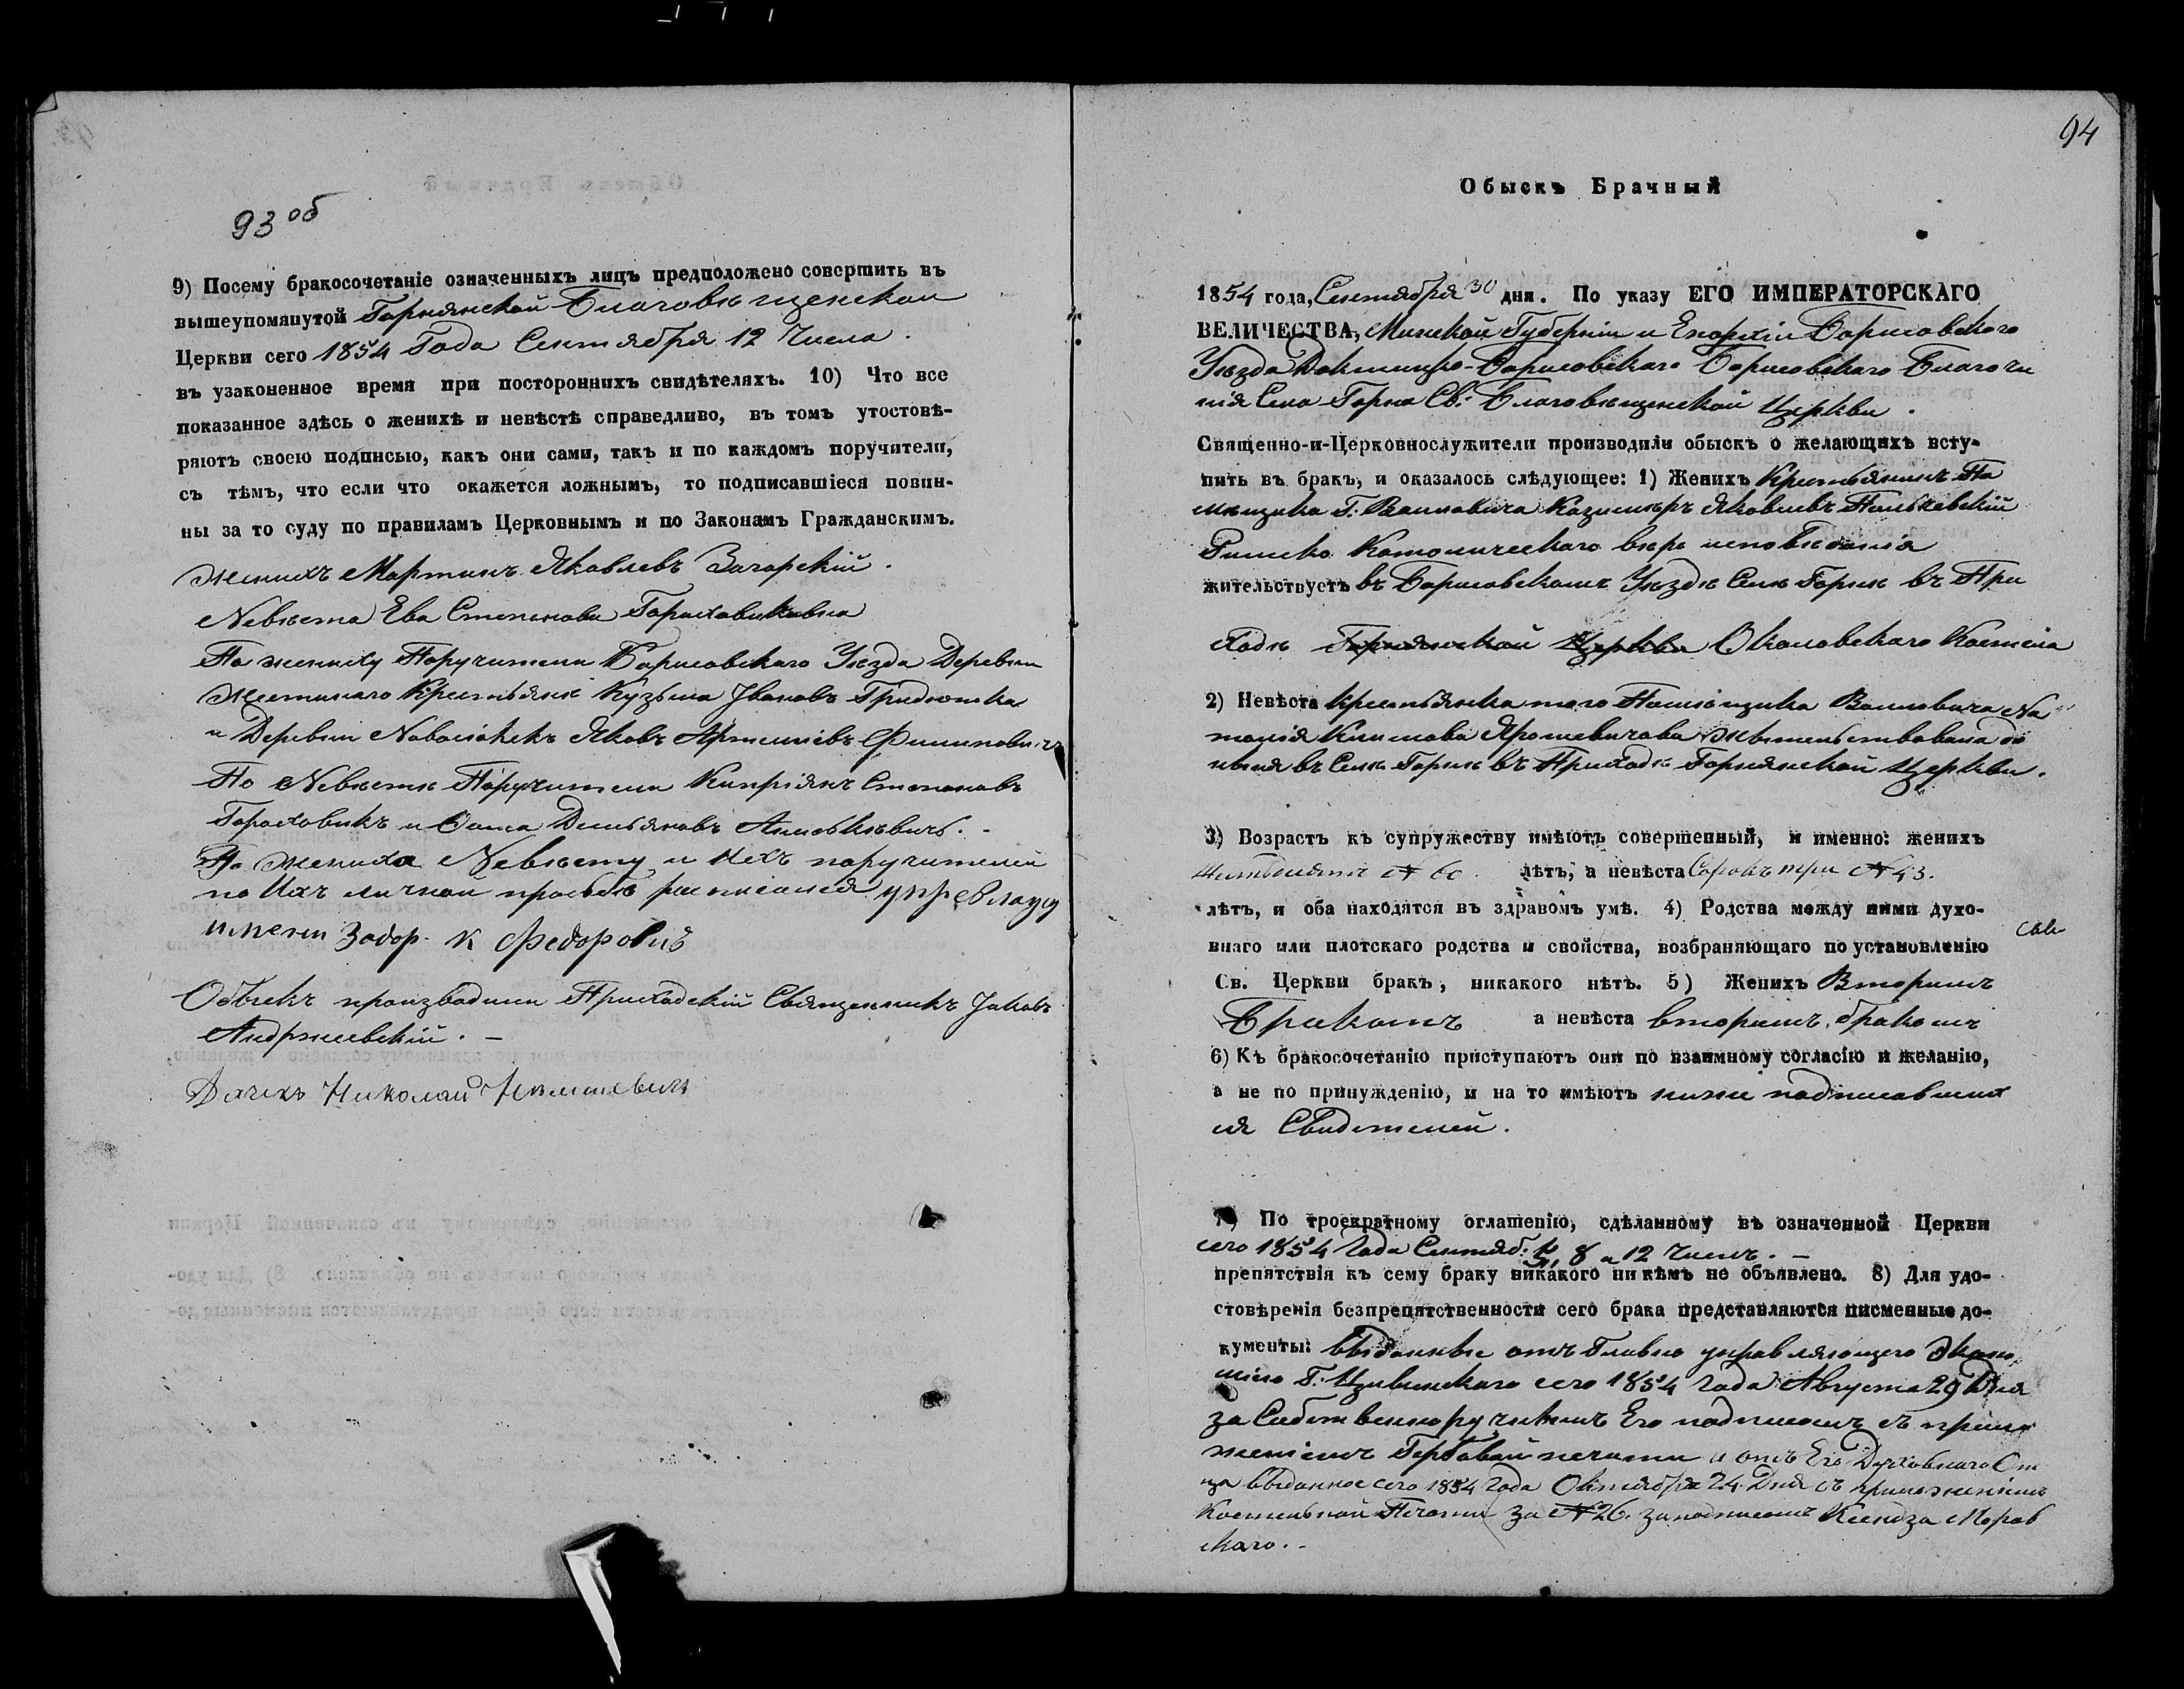 93 об
9) Посему бракосочетаніе означенныхъ лицъ предположено совершить въ
вышеупомянутой Горнянской Благовѣщенской
Церкви сего 1854 Года Сентября 12 Числа.
въ узаконенное время при постороннихъ свидѣтеляхъ. 10) Что все
показанное здѣсь о женихѣ и невѣстѣ справедливо, въ томъ утостовѣ-
ряютъ своею подписью, какъ они сами, такъ и по каждомъ поручители,
съ тѣмъ, что если что окажется ложнымъ, то подписавшіеся повин-
ны за то суду по правиламъ Церковнымъ и по Законамъ Гражданскимъ.
Женихъ Мартинъ Яковлевъ Загорскій.
Невѣста Ева Степанова
По жениху Поручители Борисовскаго Уѣзда Деревни
Крестьяне Кузьма Ивановъ
и Деревни Яковъ Филиповичъ
По Невѣстѣ Поручители Кипріянъ Степановъ
и
За жениха Невѣсту и ихъ поручителей
по Ихъ личной прозьбѣ росписался
имени К Федоровичъ
Обыскъ производили Приходскій Священникъ Іаковъ
Андржеевскій. —
Дячекъ Николай
94
Обыскъ Брачный
1854 года, Сентября 30 дня. По указу ЕГО ИМПЕРАТОРСКАГО
ВЕЛИЧЕСТВА, Минской Губерніи и Епархіи Борисовского
Уѣзда Докшицко-Борисовскаго Борисовскаго Благочи
нія Села Горна Св: Благовѣщенской Церкви.
Священно-и-Церковнослужители производили обыскъ о желающихъ всту-
пить въ бракъ, и оказалось слѣдующее: 1) Женихъ Крестьянинъ По
мѣщика Г: Ваньковича Казимиръ Яковлевъ
Римско Католическаго вѣро исповѣданія
жительствуетъ въ Борисовскомъ Уѣздѣ Селѣ Горнѣ въ При
ходѣ Горнянской Церкви Околовскаго Костела
2) Невѣста крестьянка того Помѣщика Ваньковича На
талія Климова жительствовала до
нынѣ въ Селѣ Горнѣ въ Приходѣ Горнянской Церкви.
3) Возрастъ къ супружеству имѣютъ совершенный, и именно: женихъ
№ 60. лѣтъ, а невѣста Сорокъ три № 43.
лѣтъ, и оба находятся въ здравомъ умѣ. 4) Родства между ними духо-
внаго или плотскаго родства и свойства, возбраняющаго по установленію
Св. Церкви бракъ, никакого нѣтъ. 5) Женихъ Вторымъ
Бракомъ а невѣста вторымъ бракомъ
6) Къ бракосочетанію приступаютъ они по взаимному согласію и желанію,
а не по принужденію, и на то имѣютъ ниже подписавших
ся Свидетелей.
7) По троекратному оглашенію, сдѣланному въ означенной Церкви
сего 1854 Года Сентяб: 5, 8 и 12 Числъ. —
препятствія къ сему браку никакого никѣмъ не объявлено. 8) Для удо-
стовѣренія безпрепятственности сего брака представляются писменные до-
кументы: выданные отъ Главно управляющего Эконо
міею Г. сего 1854 Года Августа 29 Дня
за Собственноручнымъ Его подписомъ съ прило
женіемъ Гербовой печати и отъ Его Духовнаго От
ца выданное сего 1854 Года Октября 24 Дня съ приложеніемъ
Костельной Печати за № 26. за подписомъ КсендзаМорав
скаго. -